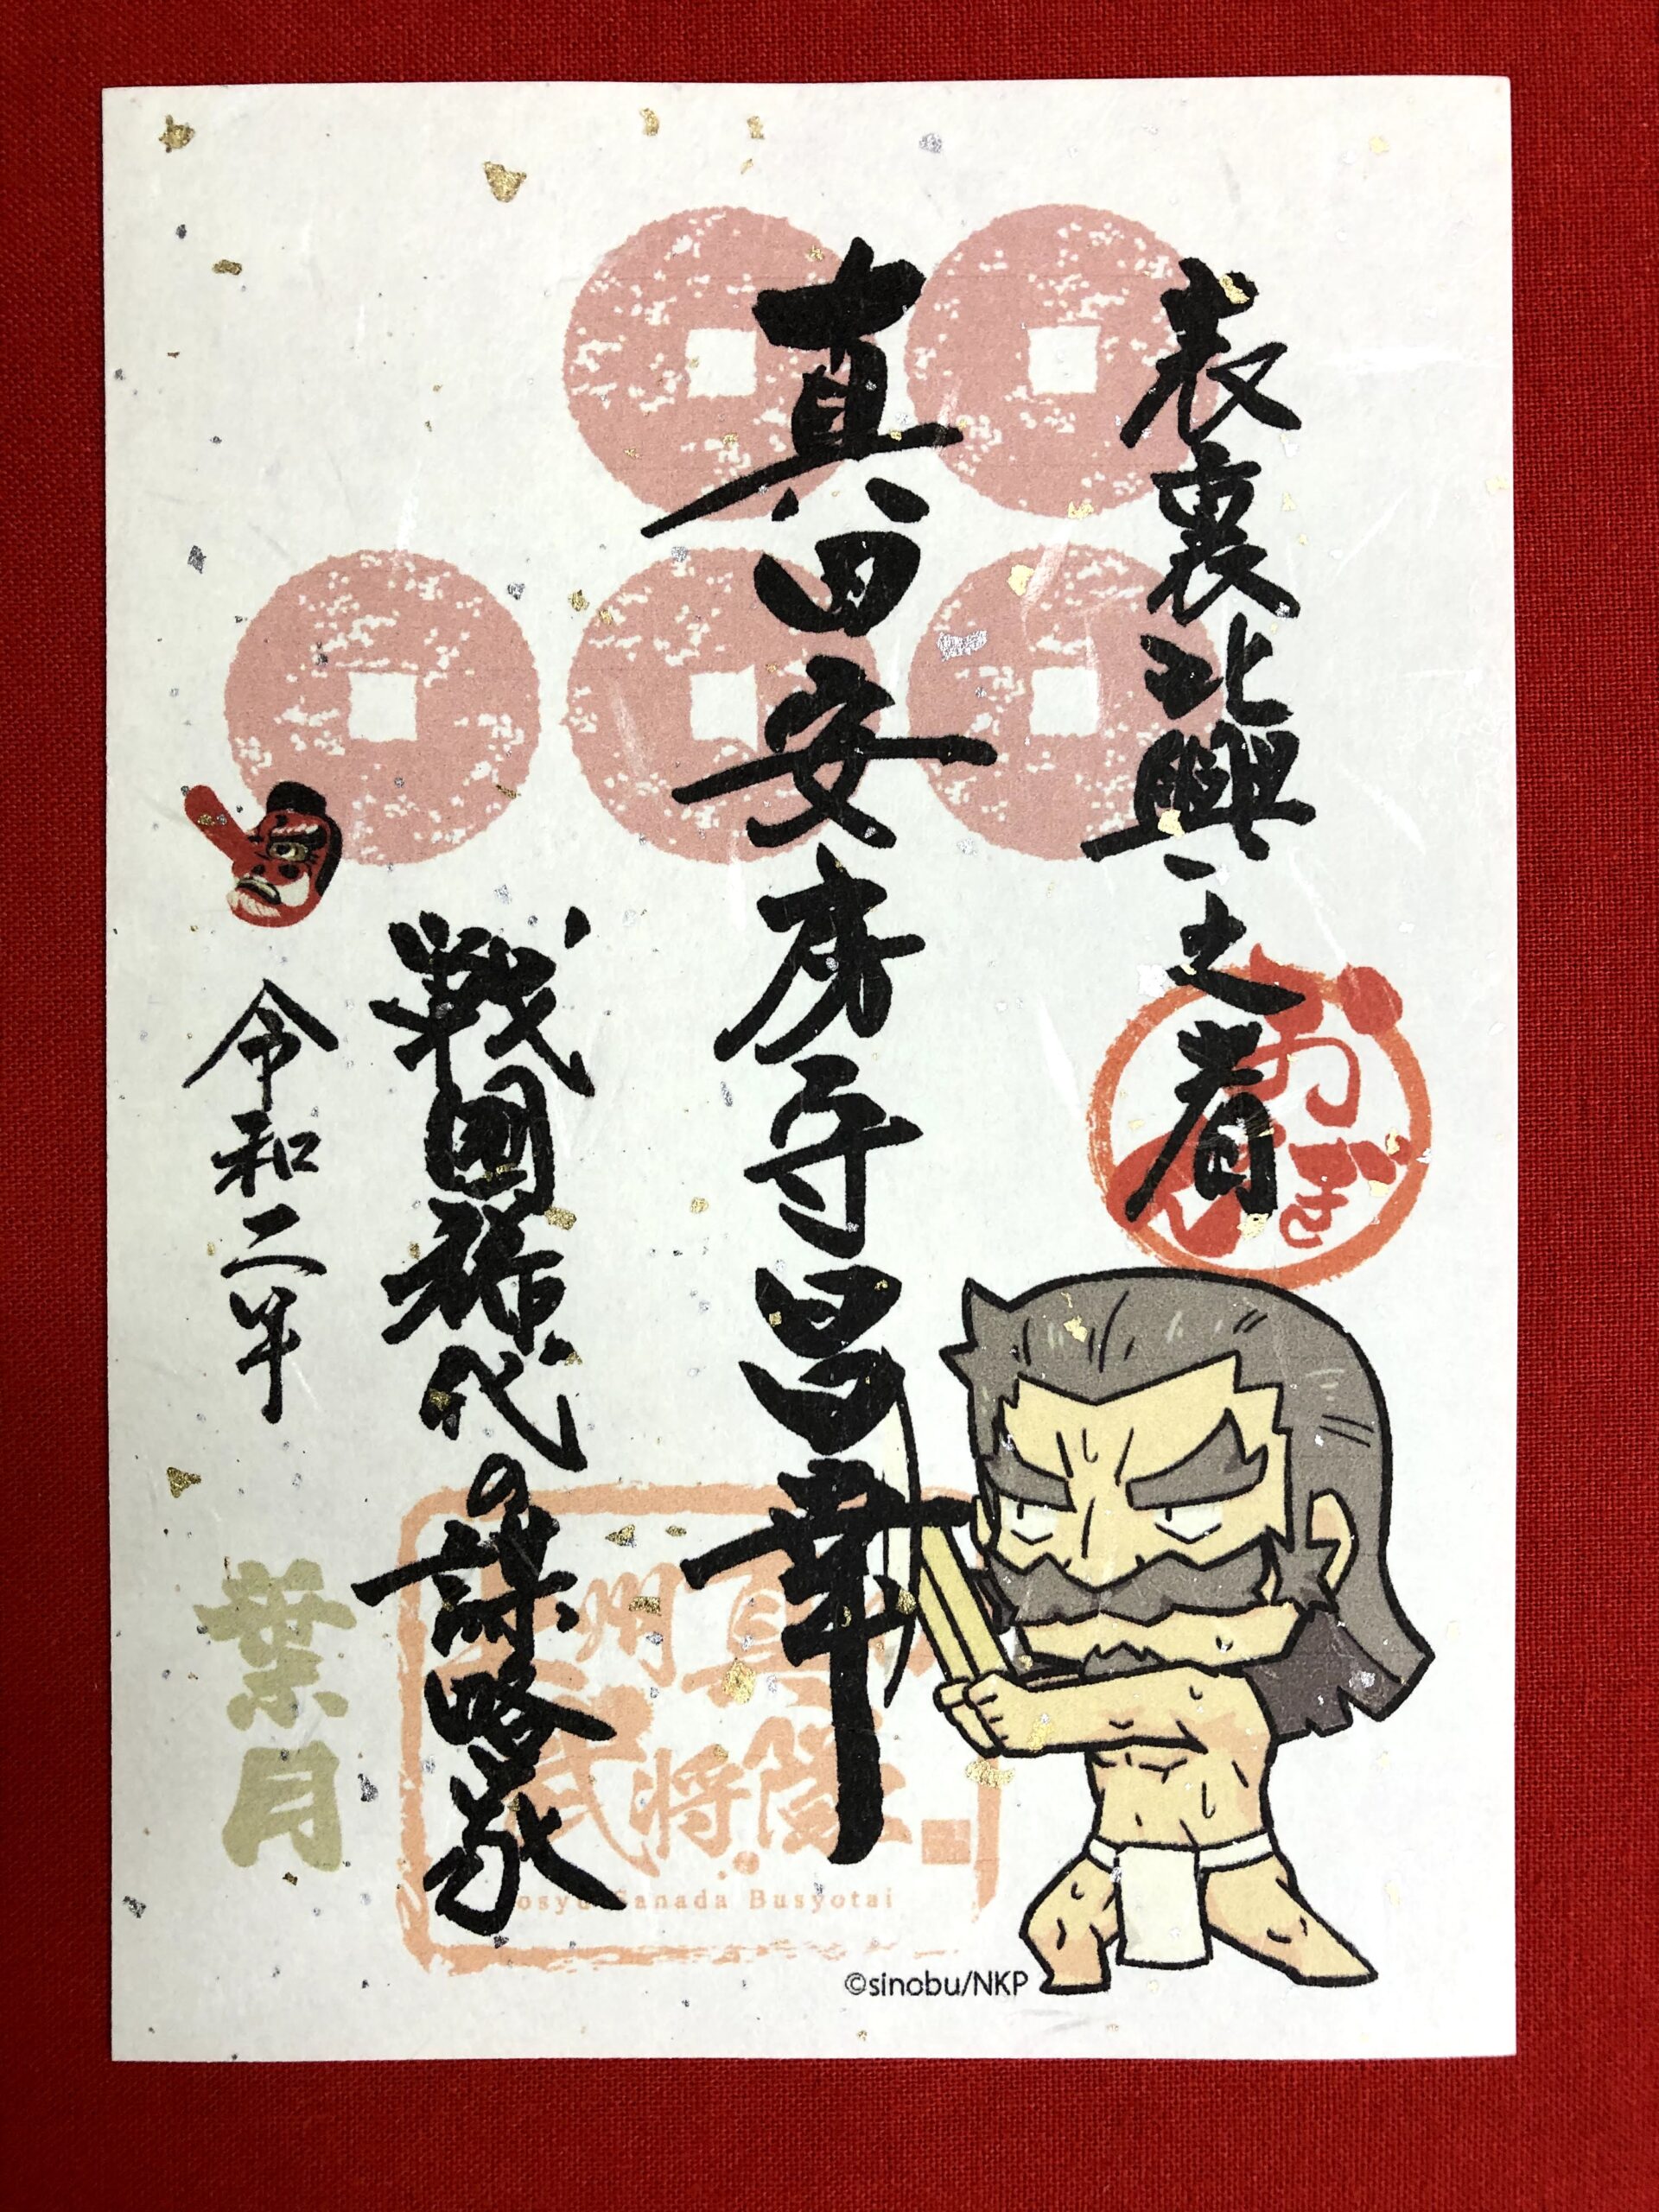 表裏比興之者
おぎん
真田安房守昌幸
戦国稀代の謀略家
令和二年
葉月
州真
武将隊
Sanada Busyotai
©sinobu/NKP